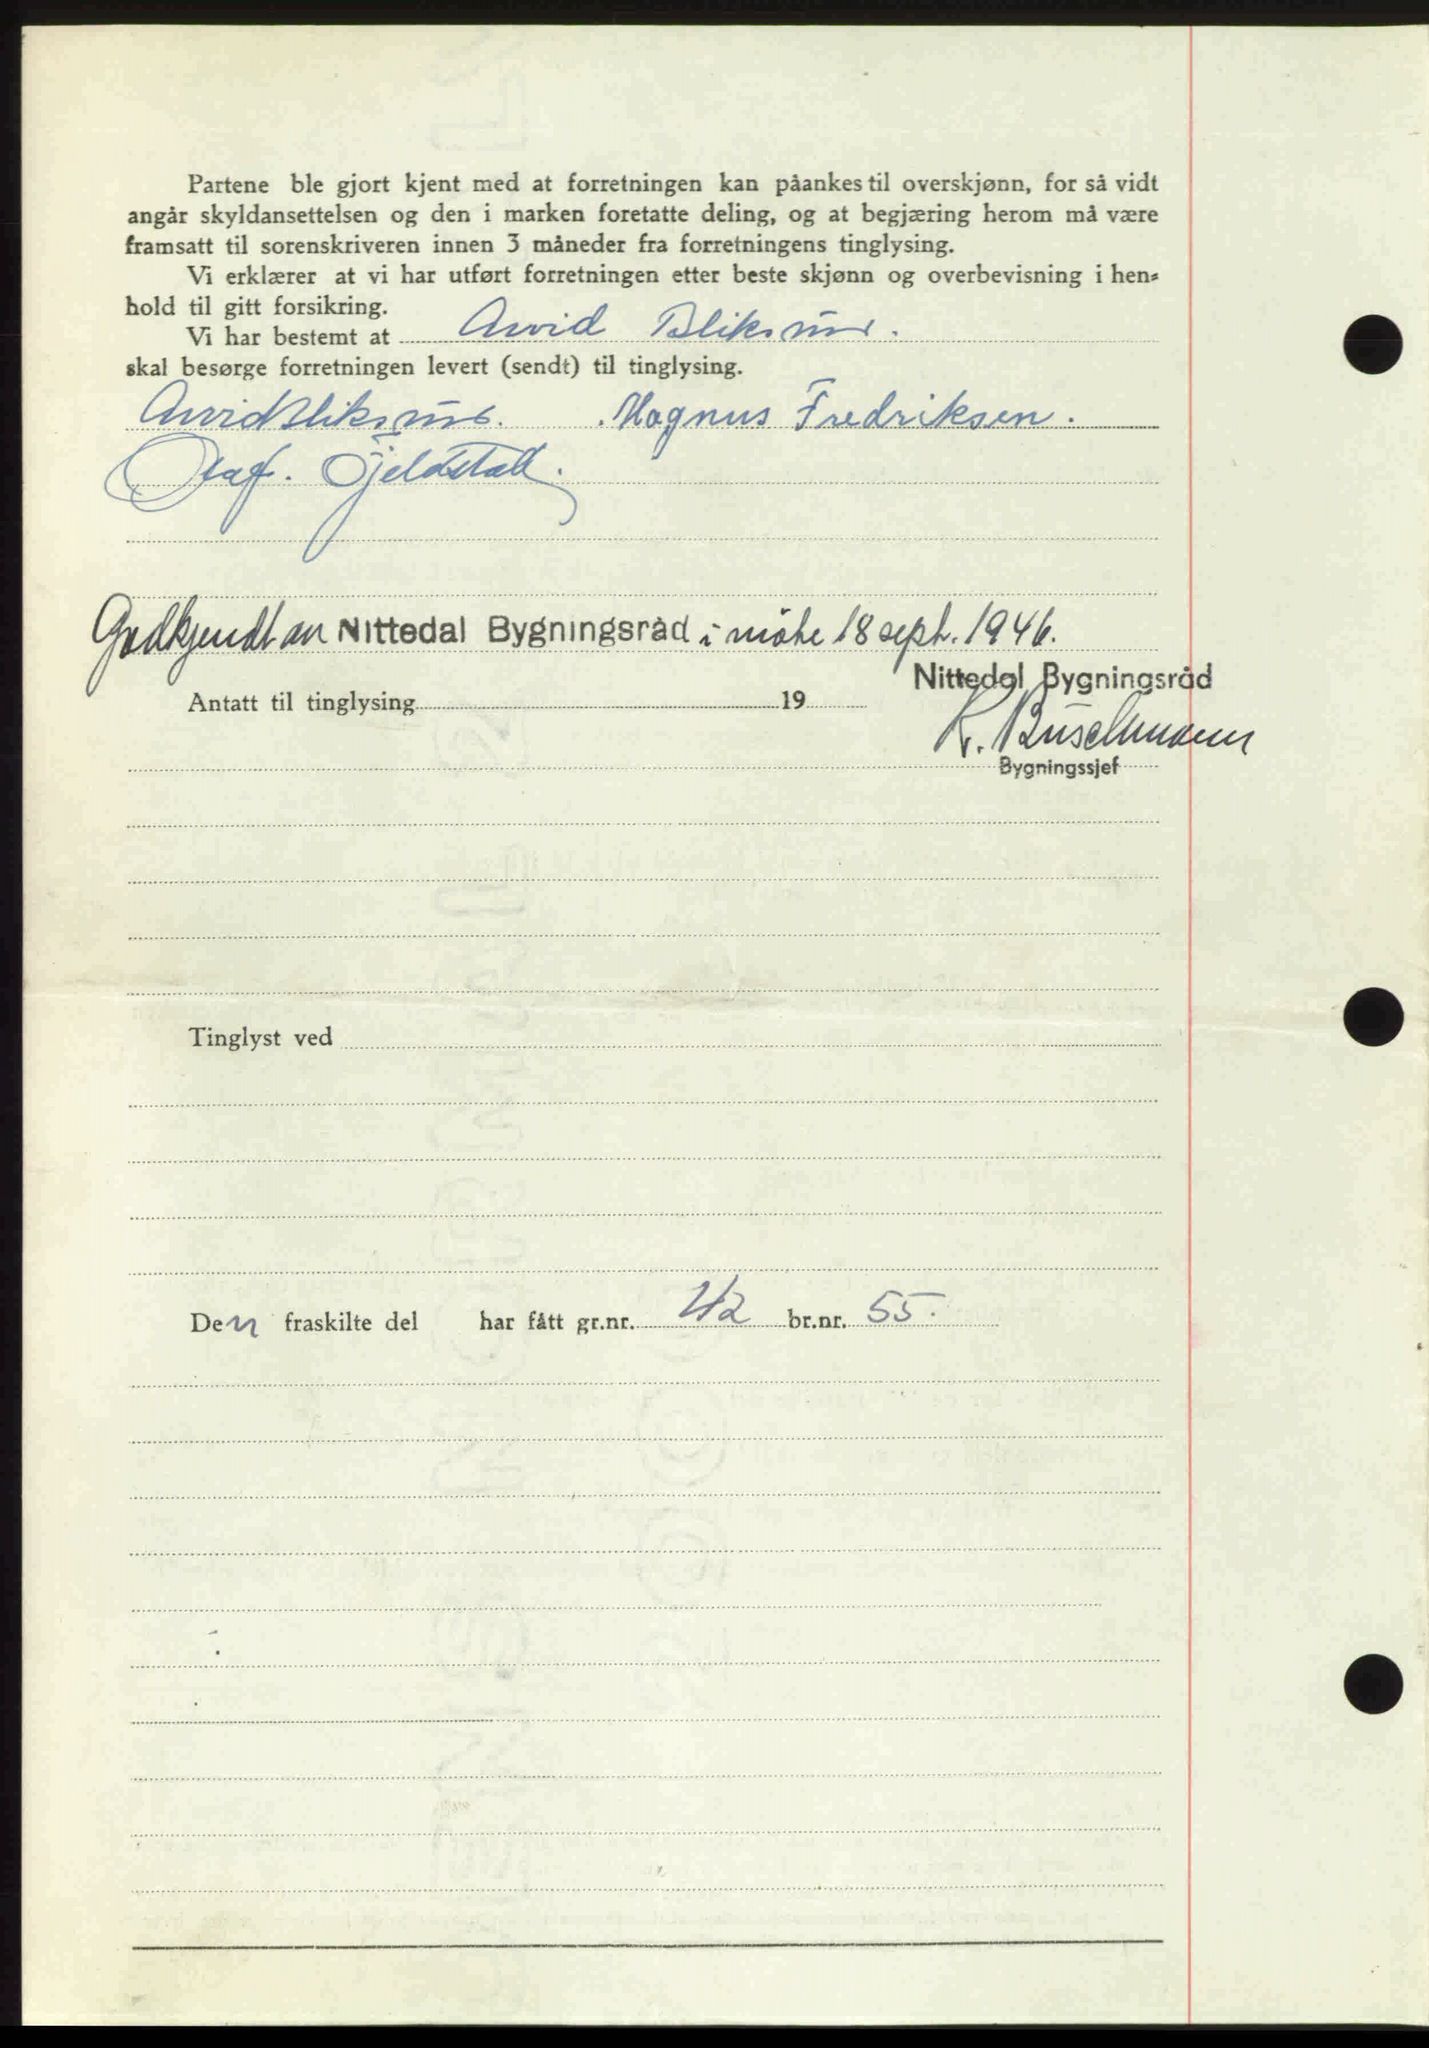 Partene ble gjort kjent med at forretningen kan påankes til overskjønn, for så vidt
angår skyldansettelsen og den i marken foretatte deling, og at begjæring herom må være
framsatt til sorenskriveren innen 3 måneder fra forretningens tinglysing.
Vi erklærer at vi har utført forretningen etter beste skjønn og overbevisning i hen-
hold til gitt forsikring.
Vi har bestemt at Arvid Bliksrud.
skal besørge forretningen levert (sendt) til tinglysing.
Arvid Bliksrud. Magnus Fredriksen.
Olaf. Gjeldstad.
Godkjendt av Nittedal Bygningsråd i møte 18 sept. 1946.
Nittedal Bygningsråd
Antatt til tinglysing 19
K. Buschmann
Bygningssjef
Tinglyst ved
Den fraskilte del har fått gr.nr. 42 br.nr. 55.